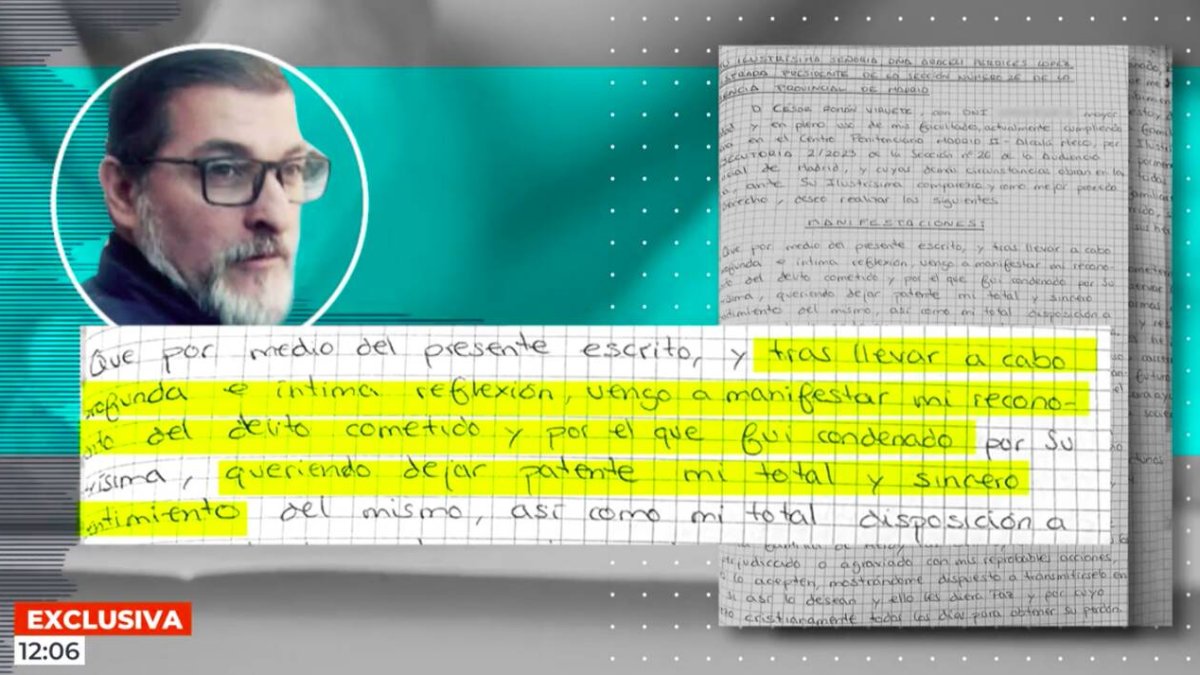 ILUSTRÍSIMA SEÑORÍA DÑA ARACELI PERDICES LOPEZ
PRESIDENTE DE LA SECCIÓN NÚMERO 26 DE LA
PROVINCIAL DE MADRID
D. CÉSAR ROMÁN VIRUETE, con DNI mayor
y en pleno uso de mis facultades, actualmente cumpliendo
en el Centro Penitenciario MADRID II - Alcalá Meco, por
2/2023 de la Sección nº 26 de la Audiencia
de Madrid, y cuyas demás circunstancias obran en la
ante Su Ilustrísima comparezco y como mejor proceda
derecho, deseo realizar las siguientes
MANIFESTACIONES:
Que por medio del presente escrito, y tras llevar a cabo
e íntima reflexión, vengo a manifestar mi recono-
del delito cometido y por el que fui condenado por Su
queriendo dejar patente mi total y sincero
del mismo, así como mi total disposición a
Que por medio del presente escrito, y tras llevar a cabo
rofunda e íntima reflexión, vengo a manifestar mi recono-
del delito cometido y por el que fui condenado por Su
rísima, queriendo dejar patente mi total y sincero
entimiento del mismo, así como mi total disposición a
o agraviado con mis reprobables acciones,
lo acepten, mostrándome dispuesto a transmitírselo en
si así lo desean y ello les diera Paz y por cuyo
cristianamente todos los días para obtener su perdón
EXCLUSIVA
12:06